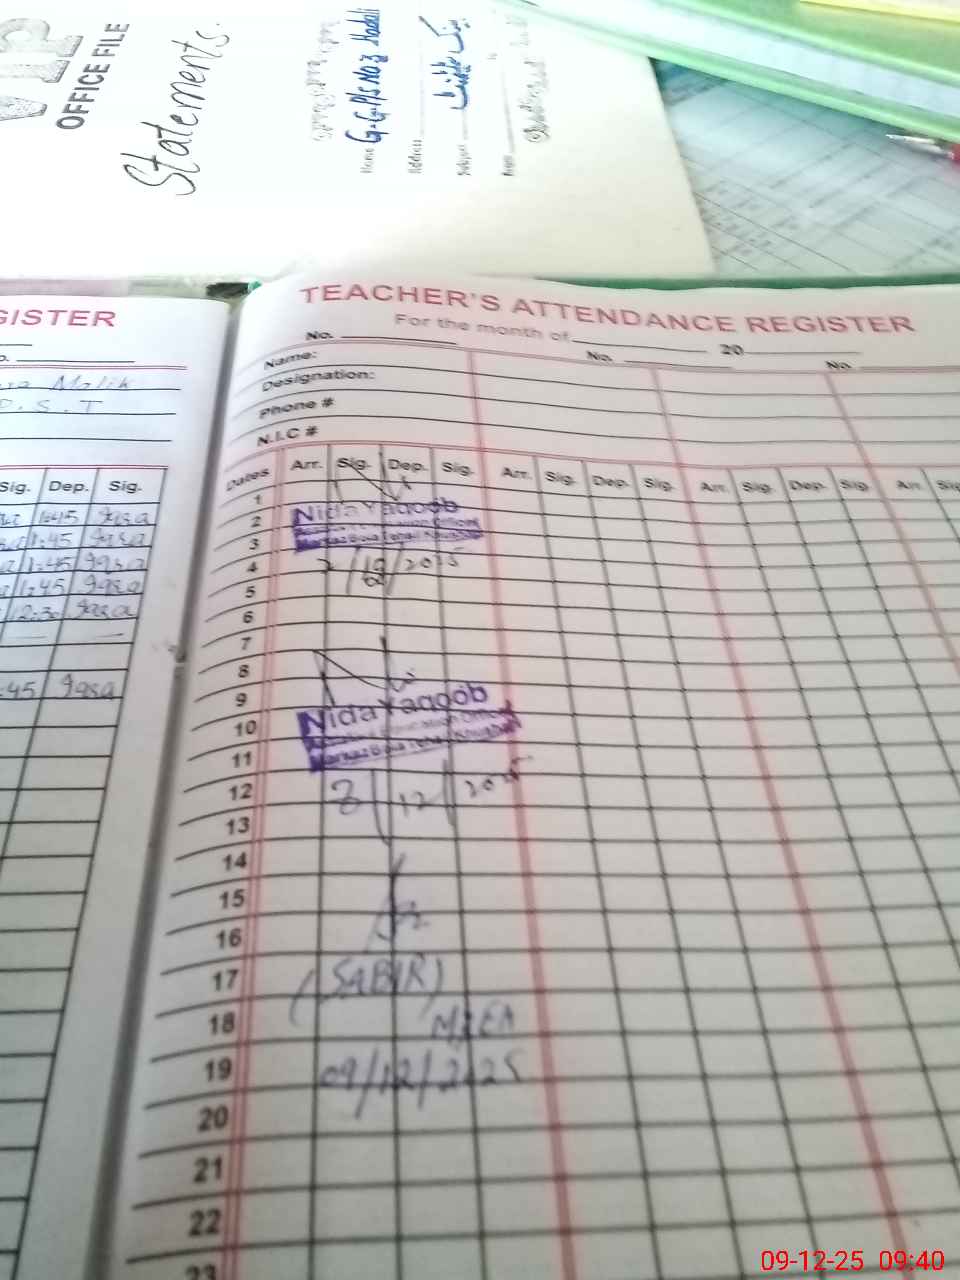 VIP
OFFICE FILE
Statements.
Name G.G.P/S No 3 Hadali
Address
Subject
From
GISTER
Malik
P.S.T
Sig. Dep. Sig.
1:45 Iqsa
1:45 Iqsa
1:45 Iqsa
1:45 Iqsa
12:30 Iqsa
:45 Iqsa
TEACHER'S ATTENDANCE REGISTER
For the month of 20
No. No. No.
Name:
Designation:
Phone #
N.I.C #
Dates Arr. Sig. Dep. Sig. Arr. Sig. Dep. Sig. Arr. Sig. Dep. Sig. Arr. Sig.
1
2 Nida Yaqoob
3 Markaz Tehsil
4 2/12/2025
5
6
7
8
9
10 Nida Yaqoob
11 Markaz Tehsil
12 8/12/2025
13
14
15
16
17 (SABIR)
18 MEA
19 09/12/2025
20
21
22
23
09-12-25 09:40